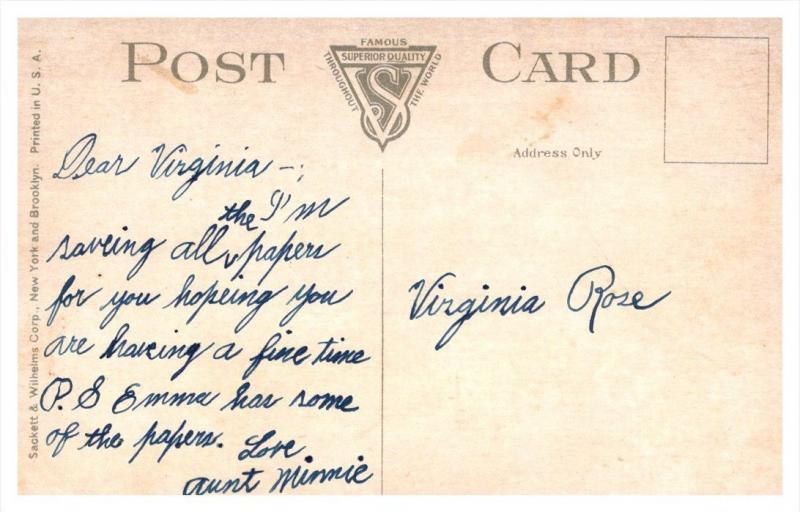 POST CARD
FAMOUS
SUPERIOR QUALITY
THROUGHOUT THE WORLD
Address Only
Sackett & Wilhelms Corp., New York and Brooklyn. Printed in U. S. A.
Dear Virginia -;
the I'm
saveing all papers
for you hopeing you
are haveing a fine time
P. S Emma has some
of the papers. Love
aunt Minnie
Virginia Rose